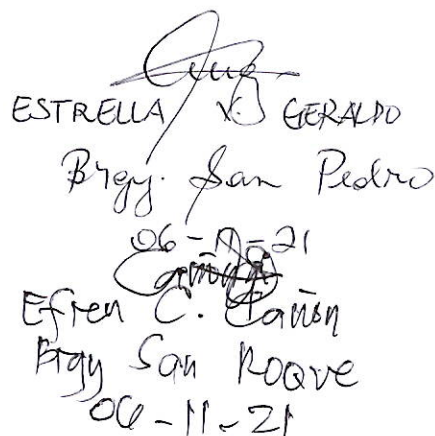 ESTRELLA V. GERALDO
Brgy. San Pedro
06-11-21
Efren C. Cañon
Brgy San Roque
06-11-21